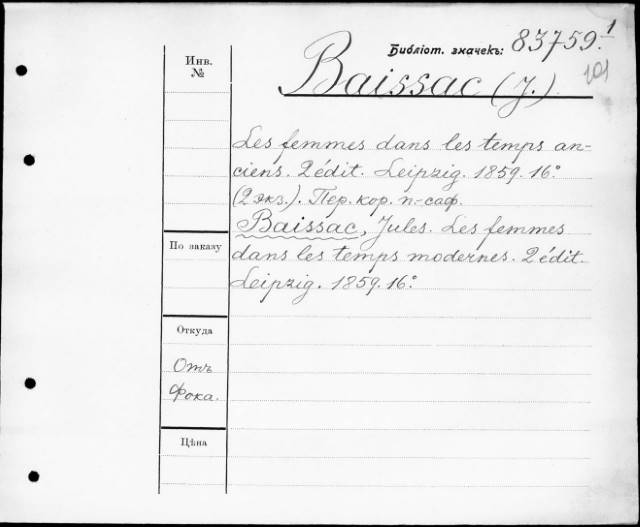 Библіот. значекъ: 83759.1
101
Baissac (J.)
Инв.
№
Les femmes dans les temps an-
ciens. 2 édit. Leipzig. 1859. 16º
(2 экз.). Пер. кор. п-саф.
Baissac, Jules. Les femmes
dans les temps modernes. 2 édit.
Leipzig. 1859. 16º
По заказу
Откуда
Отъ
Фока.
Цѣна